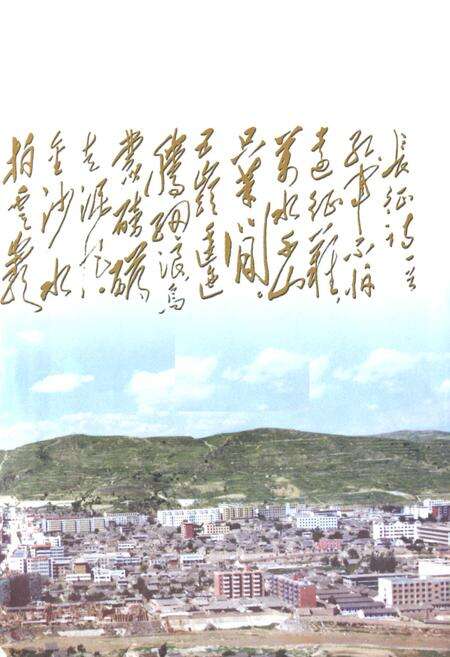 長征詩一首
紅軍不怕
遠征難,
萬水千山
只等閒。
五嶺逶迤
騰細浪,烏
蒙磅礴
走泥丸。
金沙水
拍雲崖